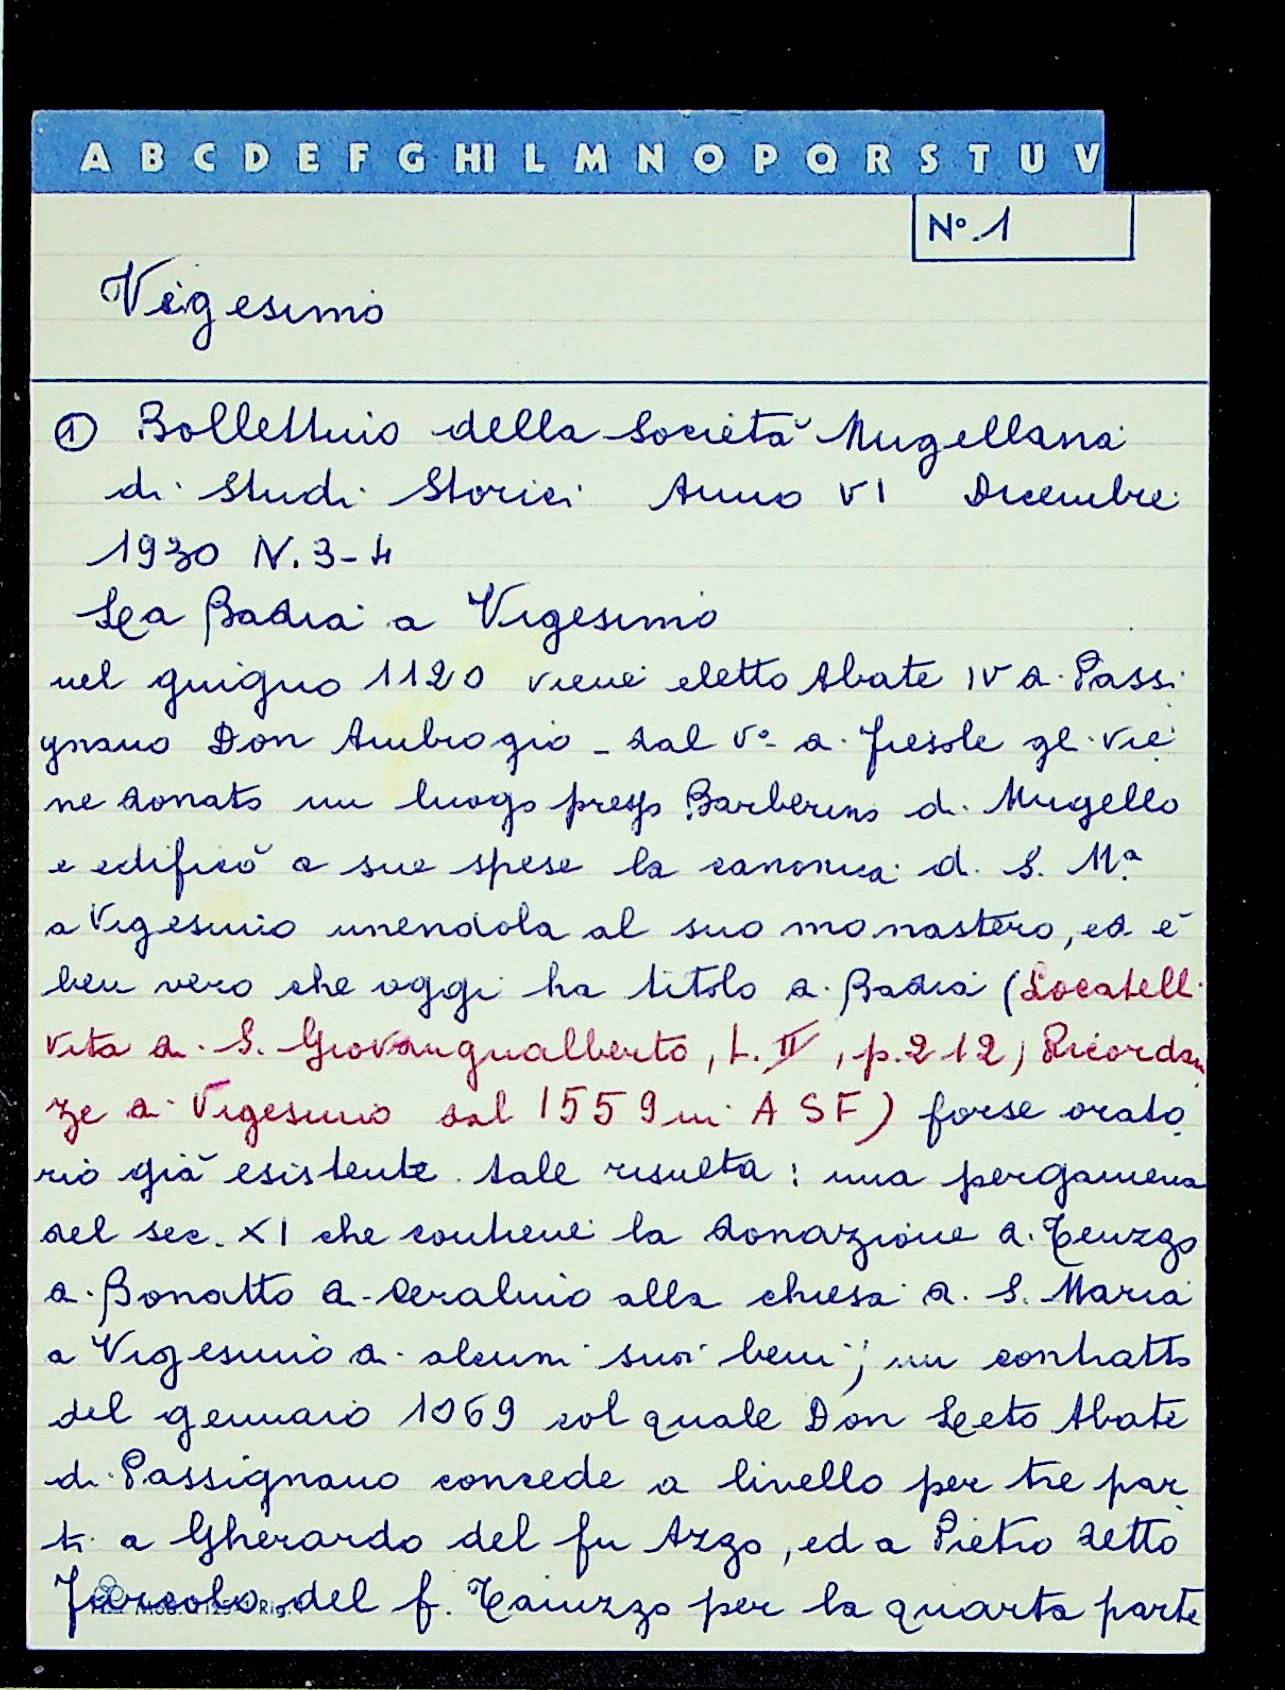 A B C D E F G HI L M N O P Q R S T U V
N°. 1
Vigesimo
① Bollettino della Società Mugellana
di Studi Storici Anno VI Dicembre
1930 N. 3-4
La Badia a Vigesimo
nel giugno 1120 viene eletto Abate IV di Passi
gnano Don Ambrogio - dal V° di Fiesole gli vie
ne donato un luogo presso Barberino di Mugello
e edificò a sue spese la canonica di S. M.ª
a Vigesimo unendola al suo monastero, ed è
ben vero che oggi ha titolo di Badia (Locatelli
vita di S. Giovangualberto, L. II, p. 212, Ricordan
ze di Vigesimo dal 1559 in ASF) forse orato
rio già esistente. tale risulta: una pergamena
del sec. XI che contiene la donazione di Teuzzo
di Bonatto di alla chiesa di S. Maria
a Vigesimo di alcuni suoi beni; un contratto
del gennaio 1069 col quale Don Leto Abate
di Passignano concede a livello per tre par
ti a Gherardo del fu Azzo, ed a Pietro detto
del f. per la quarta parte